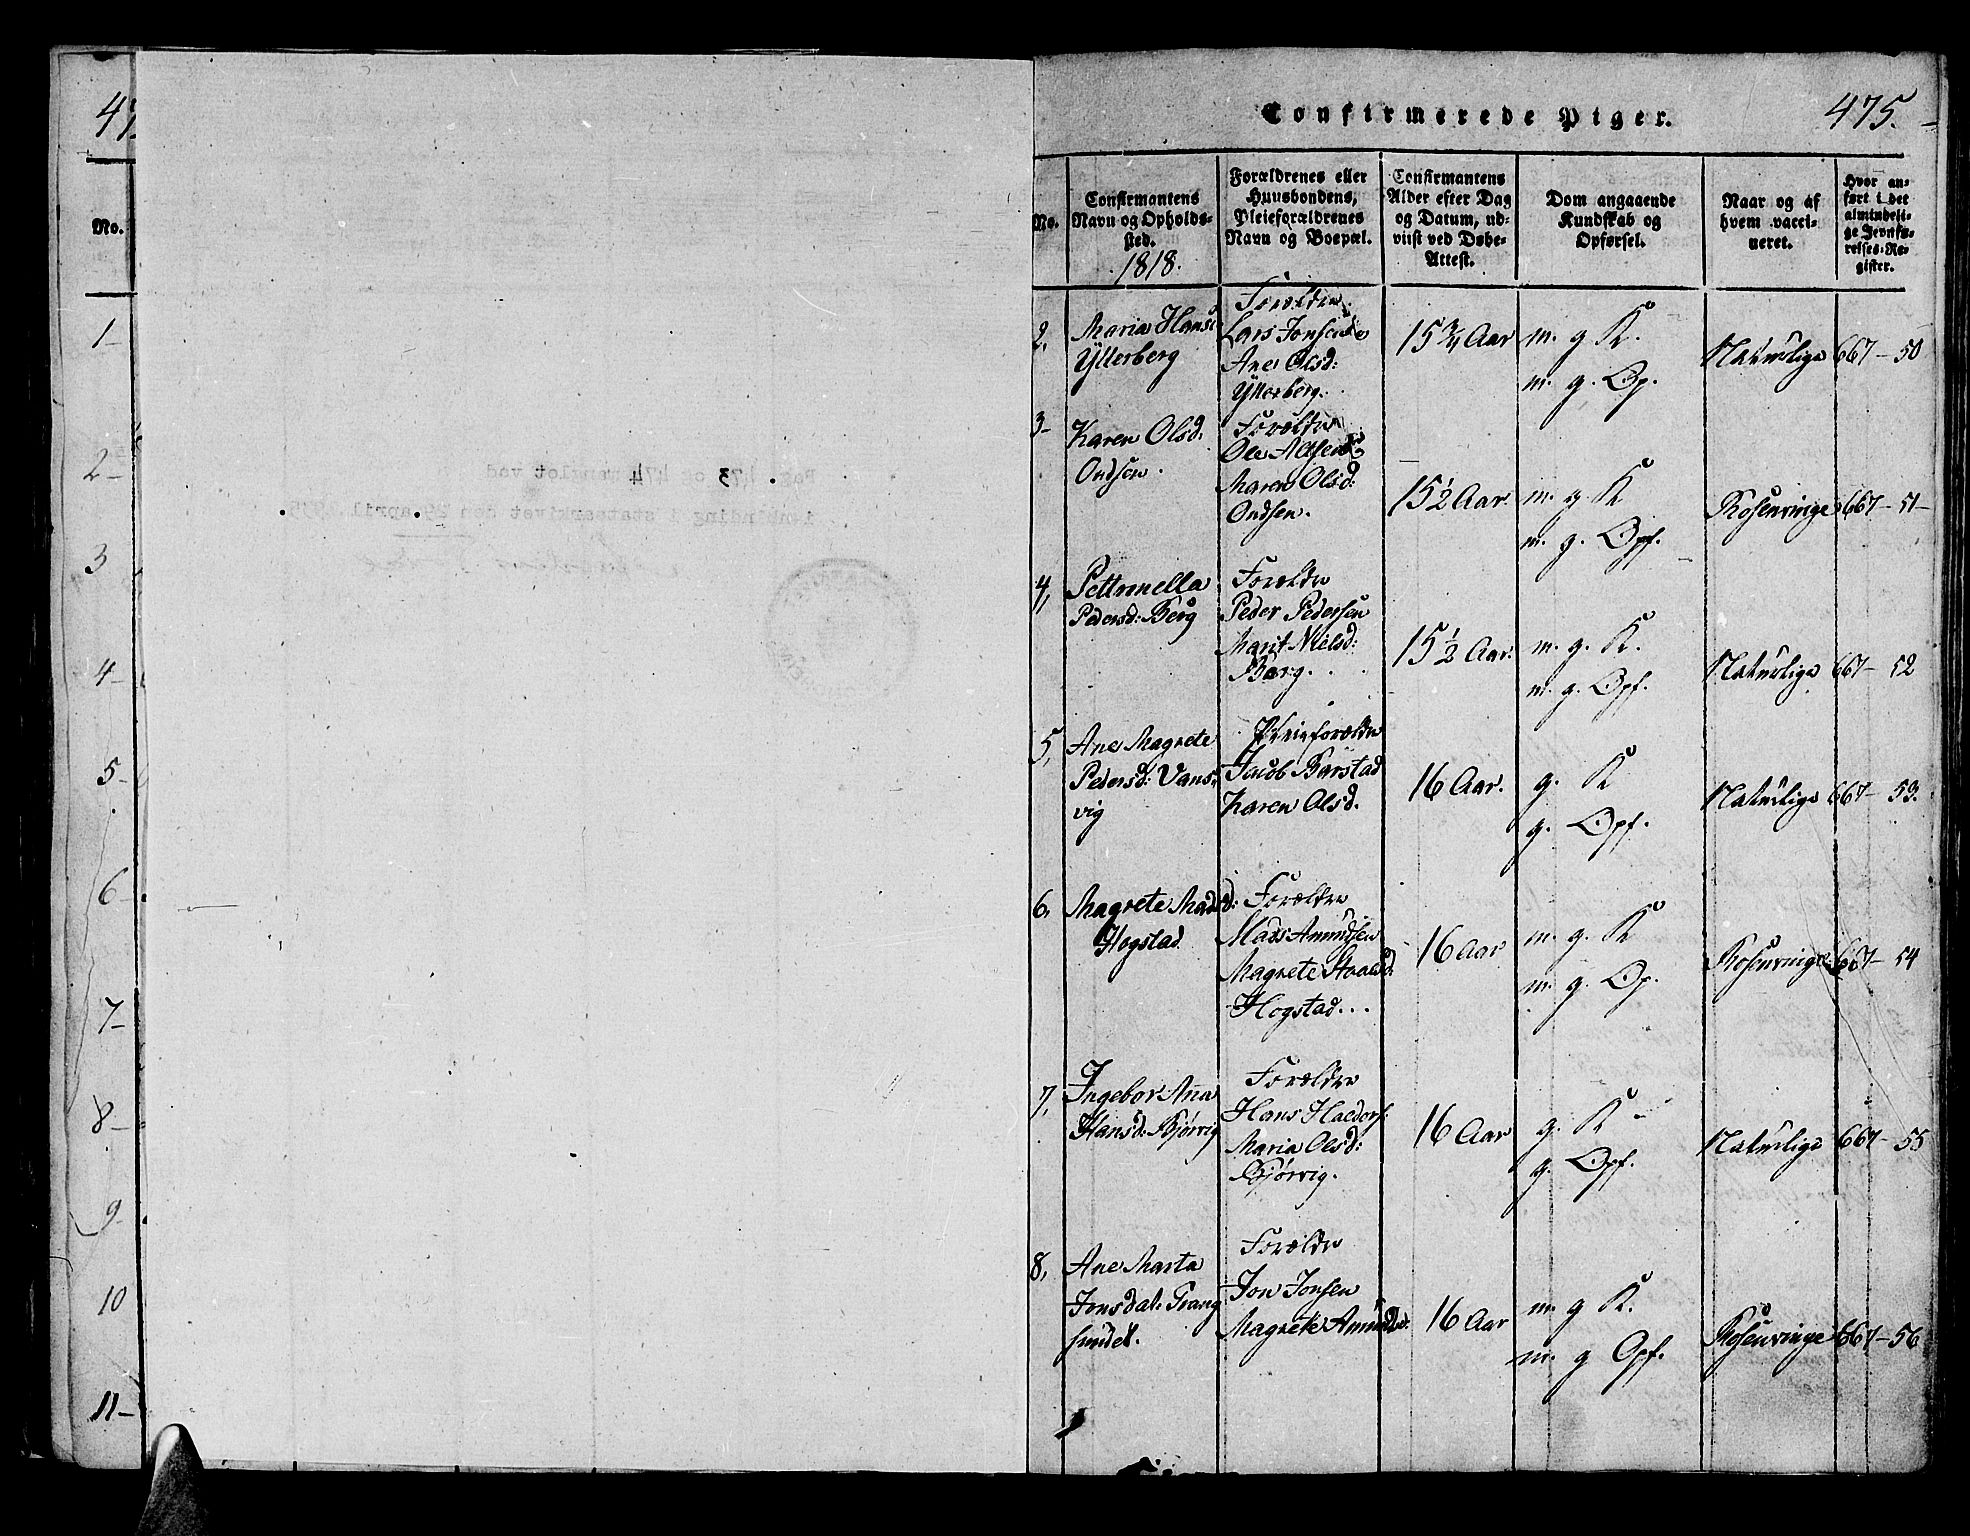 Confirmerede Piger.
475.
No.
Confirmantens
Navn og Opholds-
sted.
1818.
Forældrenes eller
Huusbondens,
Pleieforældrenes
Navn og Boepæl.
Confirmantens
Alder efter Dag
og Datum, ud-
viist ved Døbe-
Attest.
Dom angaaende
Kundskab og
Opførsel.
Naar og af
hvem vacci-
neret.
Hvor an-
ført i det
almindeli-
ge Jevnfø-
relses-Re-
gister.
2,
Maria Hans:
Ytterberg
Forældre
Lars Jonsen
Ane Olsd:
Ytterberg.
15 3/4 Aar
m. g K.
m. g. Op.
Naturlige
667-50
3-
Karen Olsd.
Ondsen.
Forældre
Ole
Maren Olsd:
Ondsen.
15 1/2 Aar
m. g K
m. g. Opf.
Rosenvinge
667-51-
4,
Pettronella
Pedersd: Berg
Forældre
Peder Pedersen
Marit Nielsd:
Berg...
15 1/2 Aar.
m. g. K.
m. g. Opf.
Naturlige
667-52
5,
Ane Magrete
Pedersd: Vans-
vig
Pleieforældre
Jacob Barstad
Karen Olsd.
16 Aar.
g. K
g. Opf.
Naturlige
667-53.
6,
Magrete Madsd:
Hogstad
Forældre
Mads Amundsen
Magrete
Hogstad...
16 Aar
m. g. K
m. g. Op.
Rosenvinge
667-54
7,
Ingebor Ana
Hansd: Bjørvig
Forældre
Hans Haldors:
Maria Olsd:
Bjørvig.
16 Aar
g. K
g. Opf.
Naturlige
667-55
8,
Ane Marta
Jonsdat: Trang
sundet.
Forældre
Jon Jonsen
Magrete Amundsd:
16 Aar
m. g K.
m. g Opf.
Rosenvinge
667-56
47
No.
1
2-
3
4-
5-
6
7-
8-
9-
10
11-